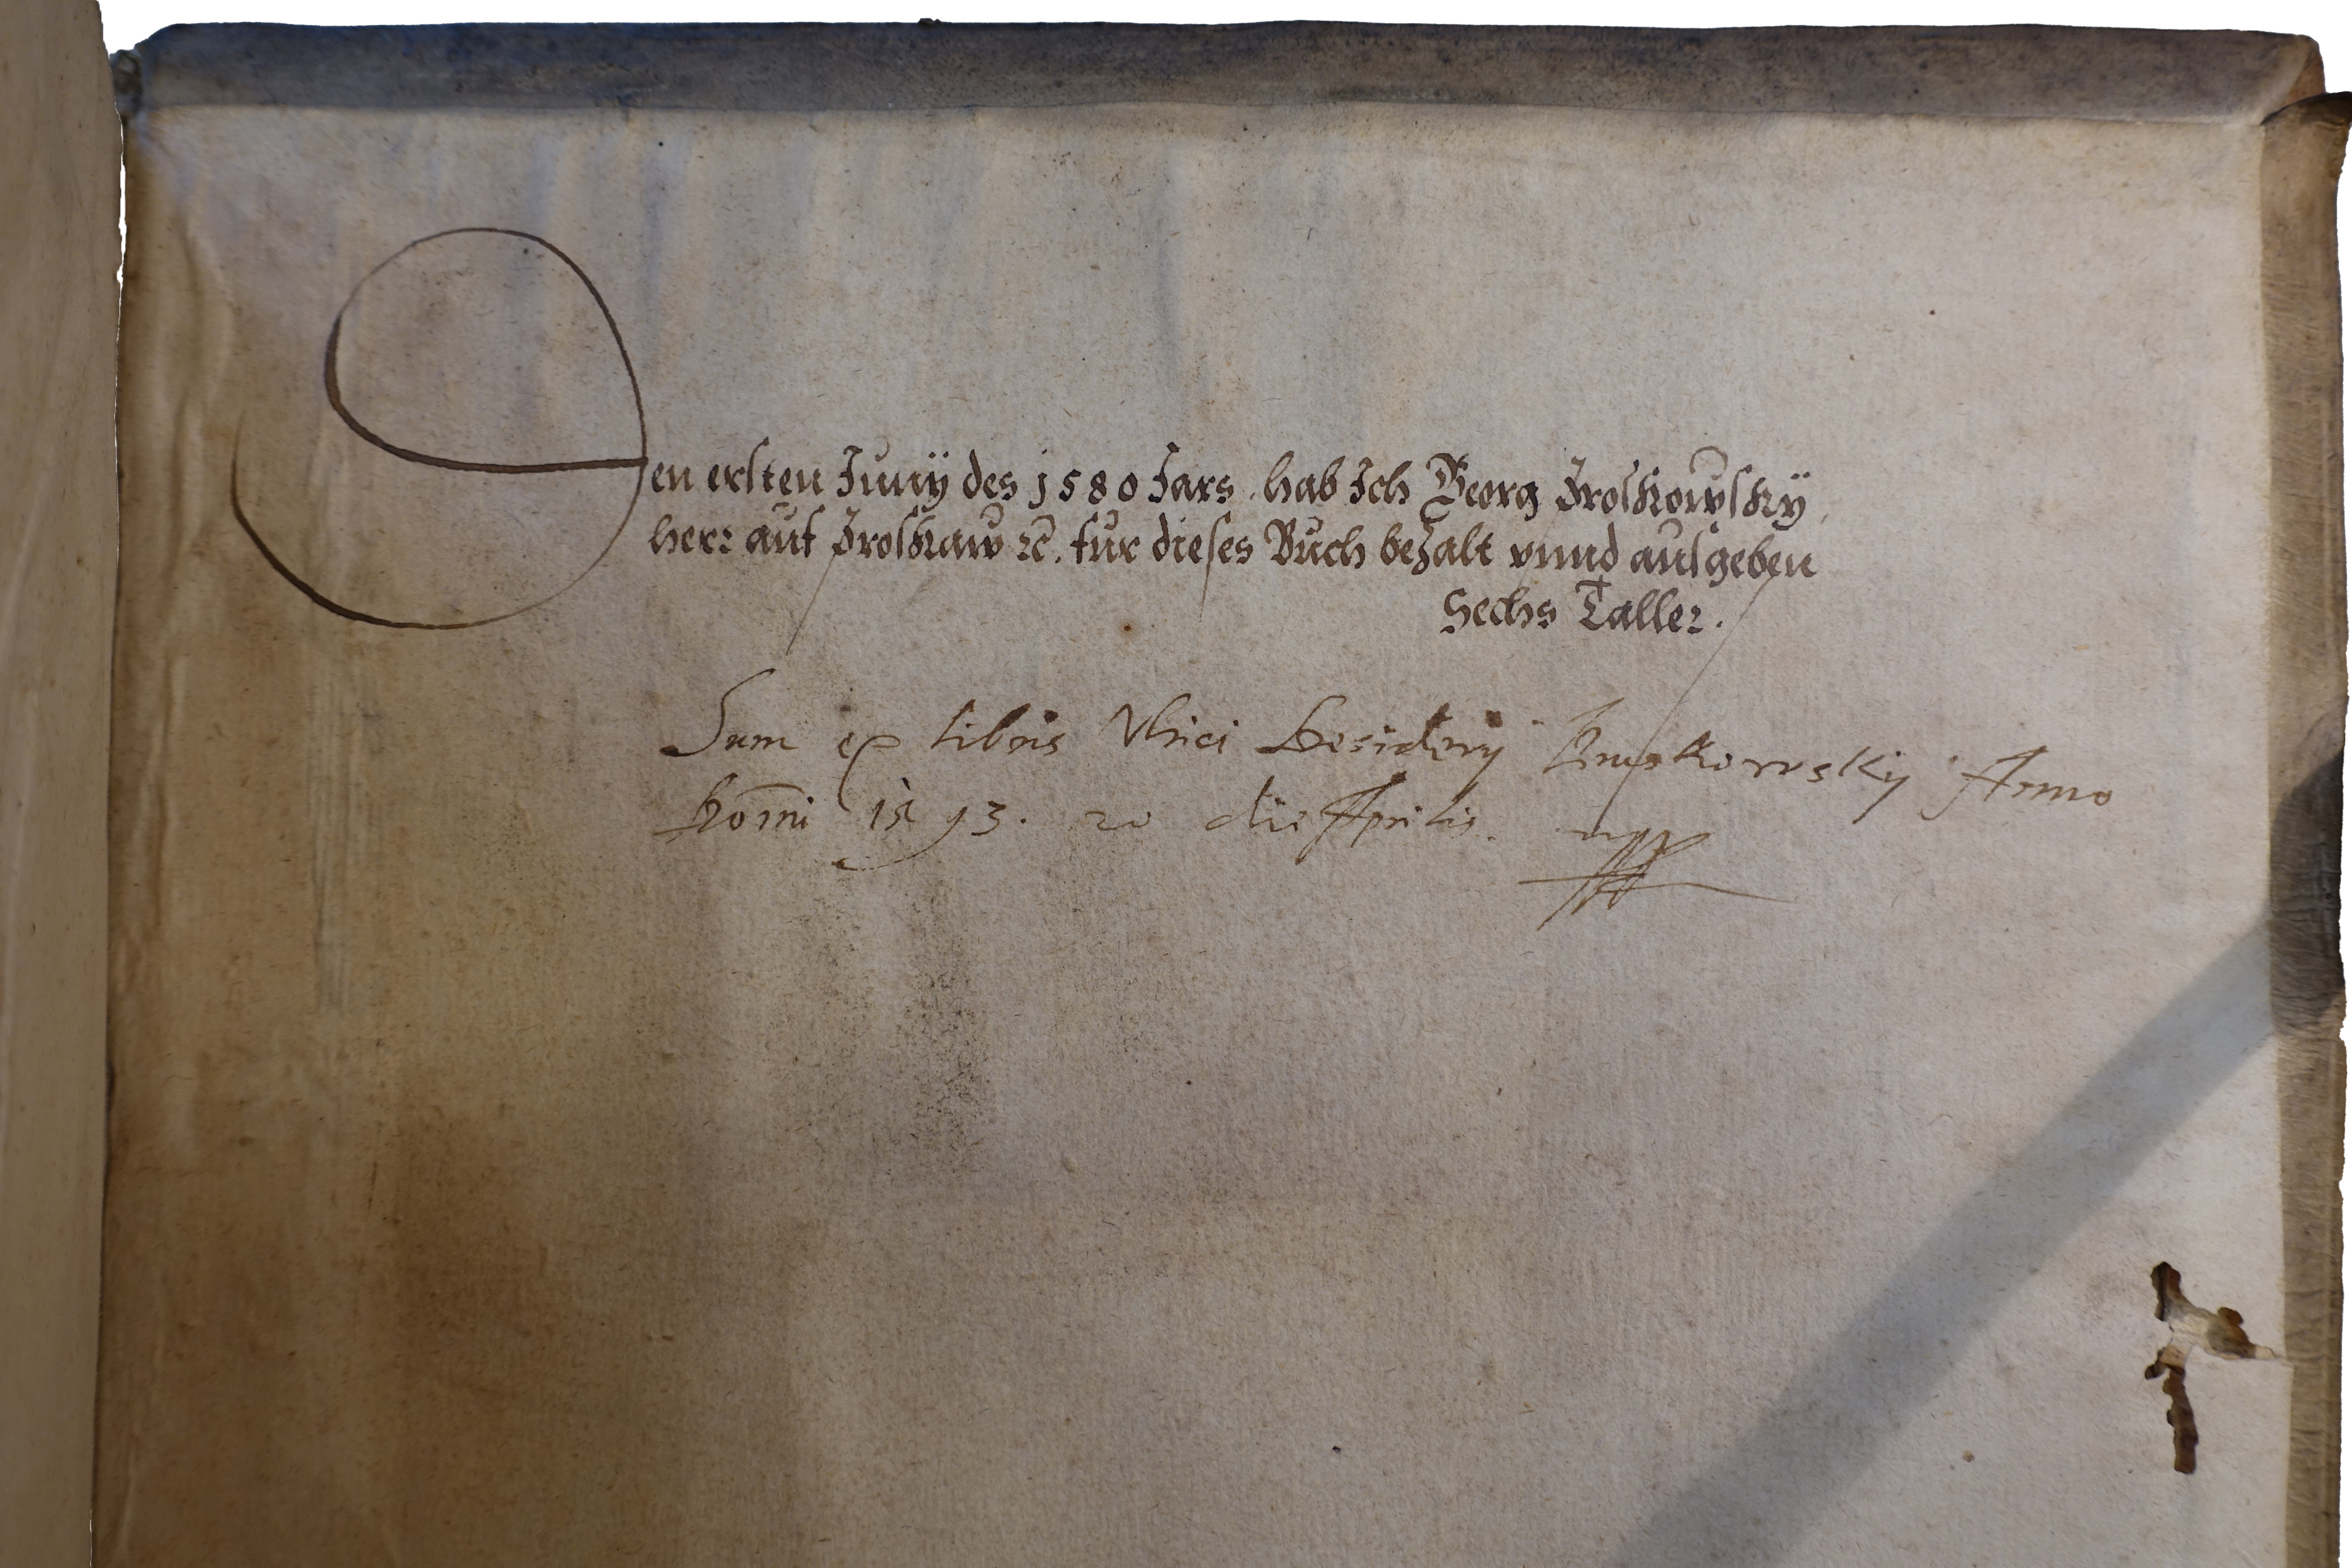 Den ersten Junÿ des 1580 Jars hab Ich Georg Proskowskÿ
herr auf Proskaw ꝛc. fur dieses Buch bezalt vnnd ausgeben
Sechs Taller.
Sum ex libris Vlrici Desiderÿ Pruskowskÿ Anno
Domi 1593. 20 die Aprilis.